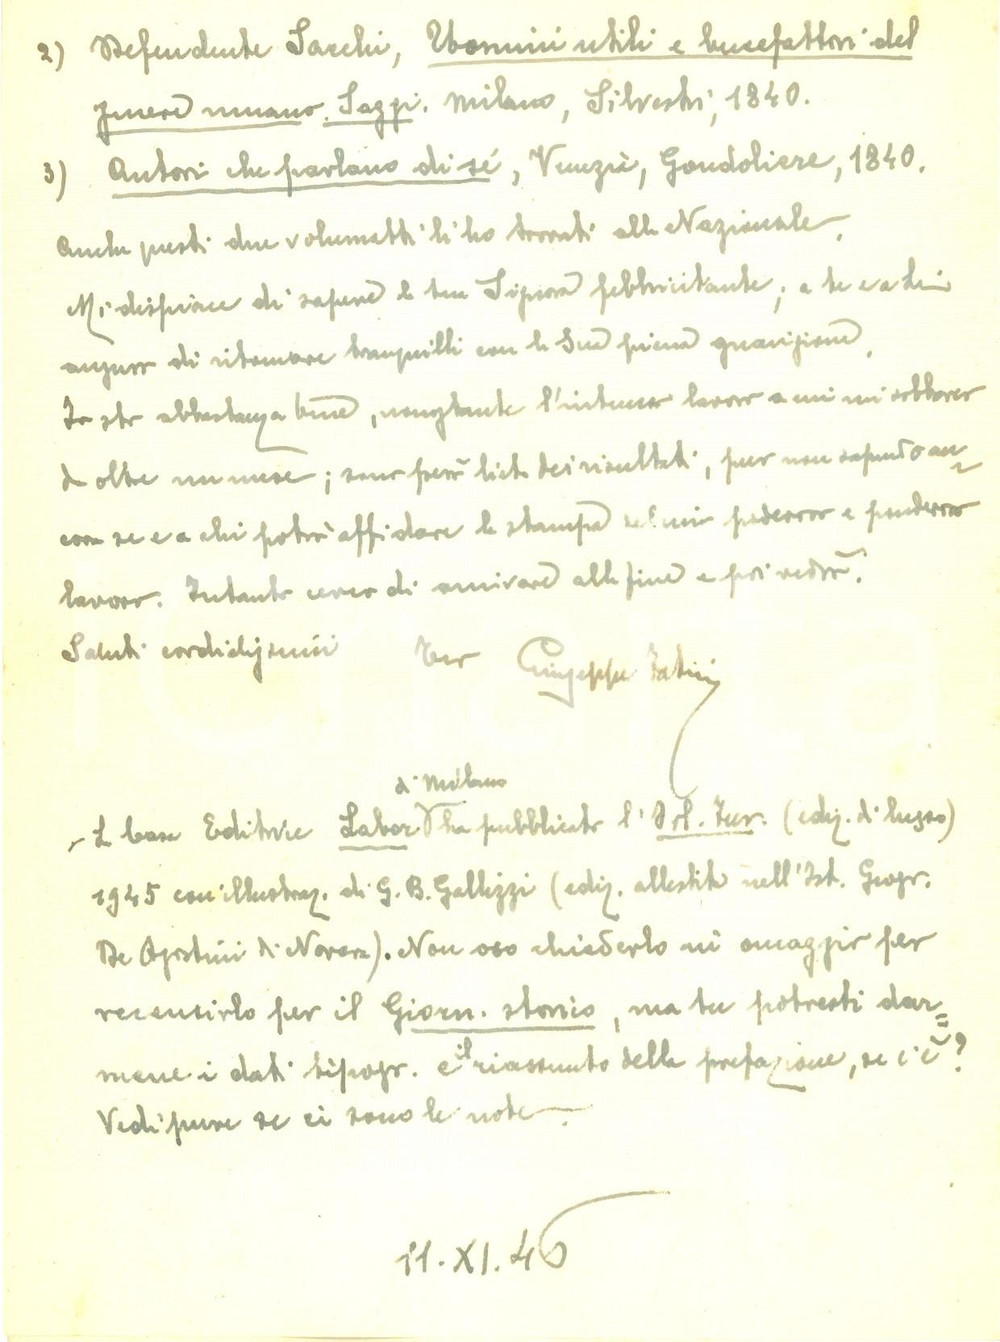 2) Defendente Sacchi, Uomini utili e benefattori del
genere umano. Saggi. Milano, Silvestri, 1840.
3) Autori che parlano di sé, Venezia, Gondoliere, 1840.
Anche questi due volumetti li ho trovati alla Nazionale.
Mi dispiace di sapere la tua Signora febbricitante; a te e a Lei
auguro di ritornare tranquilli con la Sua piena guarigione.
Io sto abbastanza bene, nonostante l'intenso lavoro a cui mi sobbarco
da oltre un mese; sono però lieto dei risultati, pur non sapendo an-
cora se e a chi potrò affidare la stampa del mio poderoso e ponderoso
lavoro. Intanto cerco di arrivare alla fine e poi vedrò.
Saluti cordialissimi Tuo Giuseppe Fatini
di Milano
La Casa Editrice Labor ha pubblicato l'Orl. Fur. (ediz. di lusso)
1945 con illustraz. di G. B. Gallizzi (ediz. allestita nell'Ist. Geogr.
De Agostini di Novara). Non oso chiederlo in omaggio per
recensirlo per il Giorn. storico, ma tu potresti dar=
mene i dati tipogr. e il riassunto della prefazione, se c'è?
Vedi pure se ci sono le note.
11.XI.46